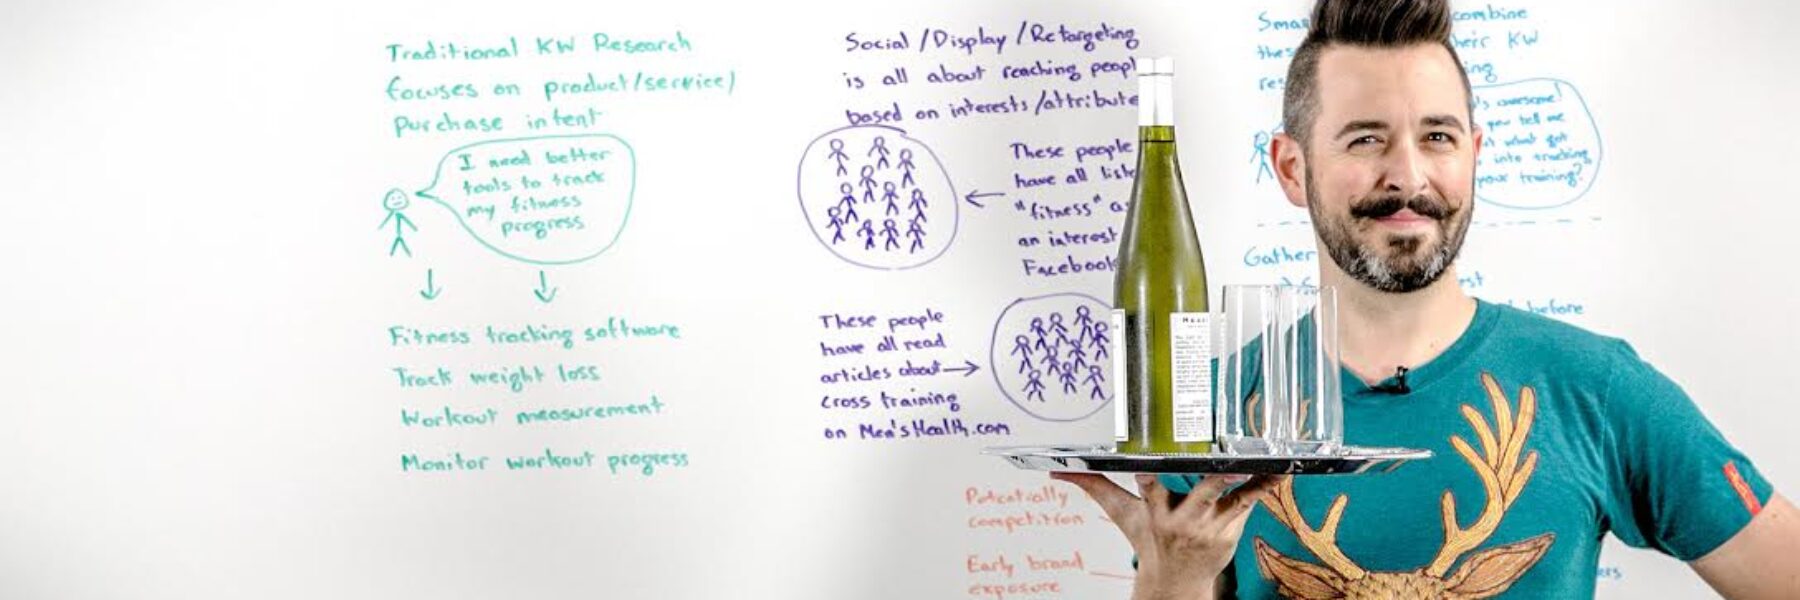 Traditional KW Research
focuses on product/service/
purchase intent
I need better
tools to track
my fitness
progress
Fitness tracking software
Track weight loss
Workout measurement
Monitor workout progress
Social/Display/Retargeting
is all about reaching peopl
based on interests/attribute
These people
have all liste
"fitness" as
an interest
Facebook
These people
have all read
articles about
cross training
on Men'sHealth.com
combine
their KW
's awesome!
you tell me
what got
into tracking
your training?
Gather
before
Potentially
competition
Early brand
exposure